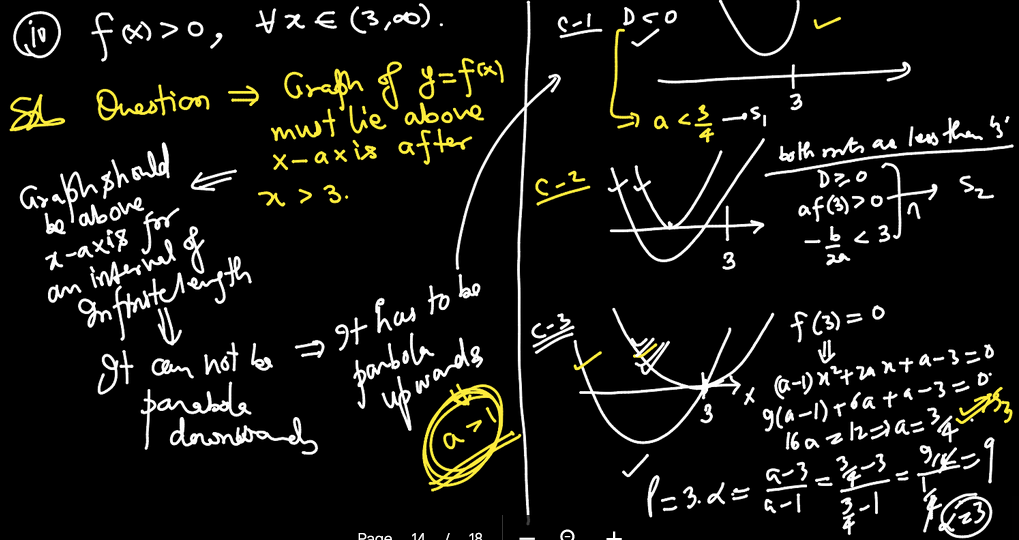 (iv) f(x) > 0, ∀ x ∈ (3, ∞).
Sol Question ⇒ Graph of y = f(x)
must lie above
x-axis after
x > 3.
⇐
Graph should
be above
x-axis for
an interval of
Infinite length
⇓
It can not be
parabola
downwards
⇒ It has to be
parbola
upwards
a > 1
C-1 D < 0
3
⇒ a < 3/4 → S1
C-2
both roots are less then '3'
D ≥ 0
af(3) > 0
-b/2a < 3
∩ → S2
3
C-3
3
x
f(3) = 0
⇓
(a-1)x² + 2ax + a-3 = 0
9(a-1) + 6a + a-3 = 0.
16a = 12 ⇒ a = 3/4 S3
P = 3.α = a-3/a-1 = 3/4-3 / 3/4-1 = 9/4 / 1/4 = 9
α = 3
Page 14 / 18 — +